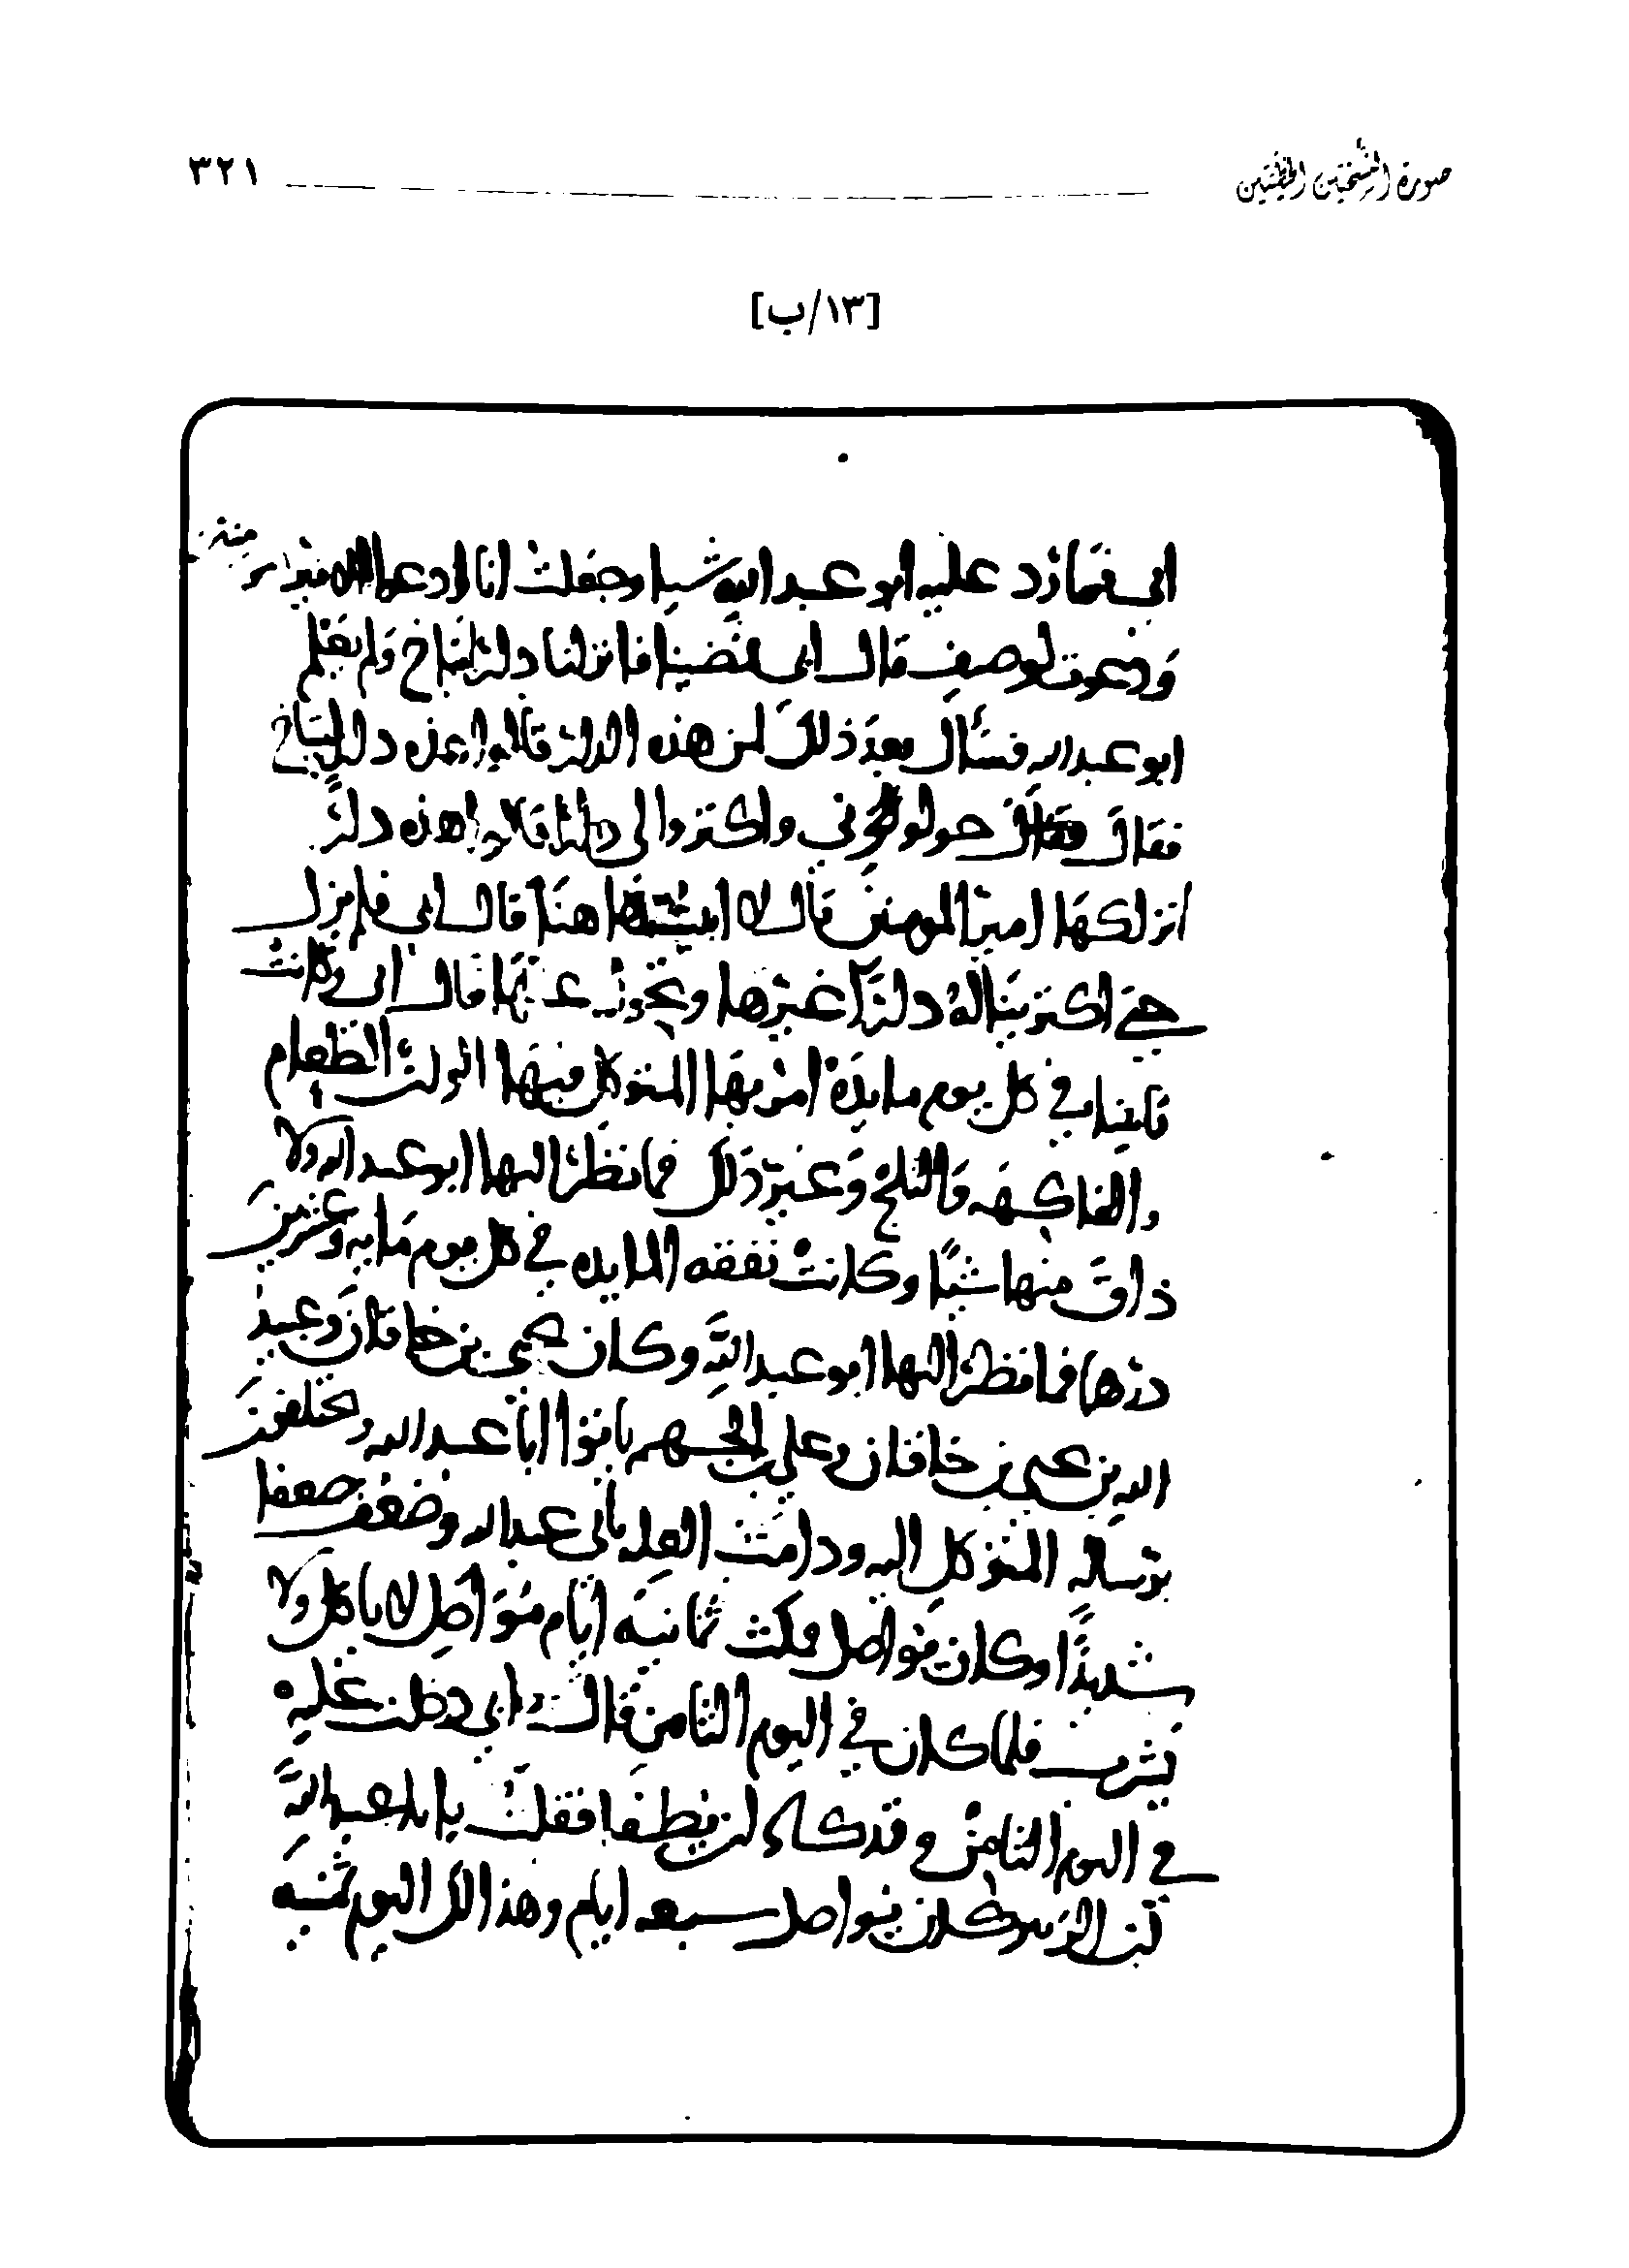 صورة النسختين الخطيتين ٣٢١
[١٣/ب]
ابي فما رد عليه ابو عبد الله شيا وجعلت انا ادعوا لامير
ودعوت لوصيف قال ابي فمضينا فانزلنا دار ايتاخ ولم يعلم
ابو عبد الله فسأل بعد ذلك لمن هذه الدار قالوا هذه دار ايتاخ
فقال فقال حولوني واكتروا لي دارا قالوا هذه دار
انزلكها امير المومنين قال لا ابيت هاهنا قال ابي فلم يزل
حتى اكترينا له دارا غيرها وتحول عنها قال ابي وكانت
تاتينا في كل يوم مايدة امر بها المتوكل فيها الوان الطعام
والفاكهه والثلج وغير ذلك فما نظر اليها ابو عبد الله ولا
ذاق منها شيا وكانت نفقه المايده في كل يوم مايه وعشرين
درهما فما نظر اليها ابو عبد الله وكان يحيى بن خاقان وعبيد
الله بن يحيى بن خاقان وعلي بن الجهم ياتوا ابا عبد الله ويختلفون
برساله المتوكل اليه ودامت العله بابي عبد الله وضعف ضعفا
شديدا وكان يواصل فمكث ثمانيه ايام مواصل لا ياكل ولا
يشرب فلما كان في اليوم الثامن قال ابي دخلت عليه
في اليوم الثامن وقد كاد ان يطفا فقلت يا ابا عبد الله
ابن الزبير كان يواصل سبعه ايام وهذا لك اليوم ثمنيه